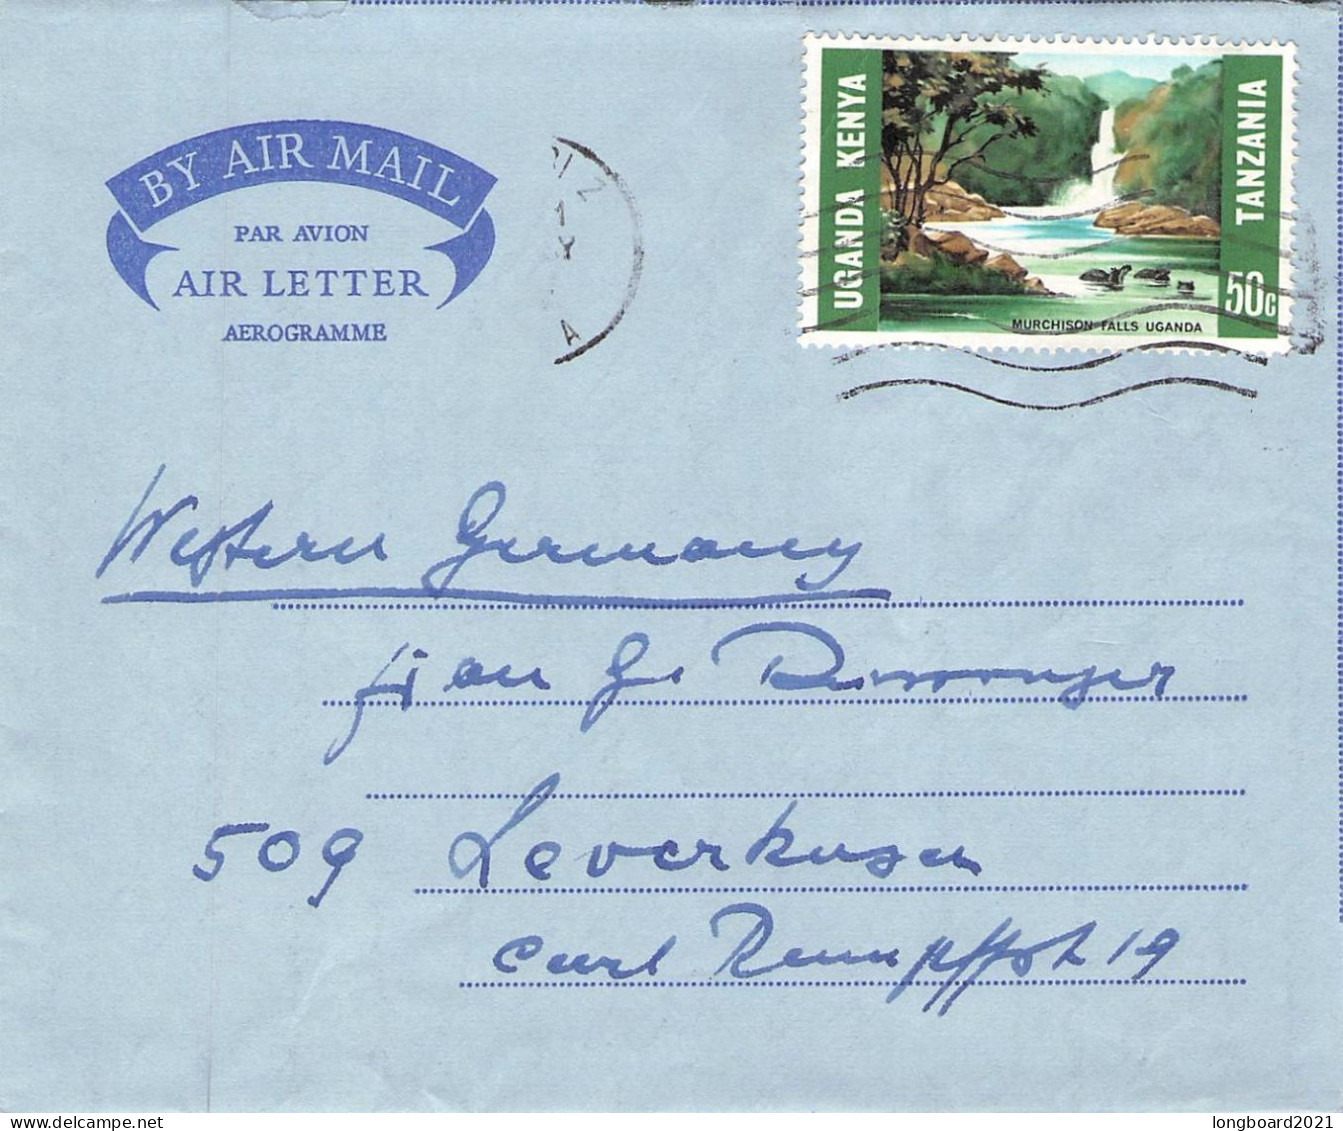 BY AIR MAIL
PAR AVION
AIR LETTER
AEROGRAMME
UGANDA KENYA
TANZANIA
50c
MURCHISON FALLS UGANDA
Western Germany
509 Leverkusen
Carl Rumpffstr 19
longboard2021